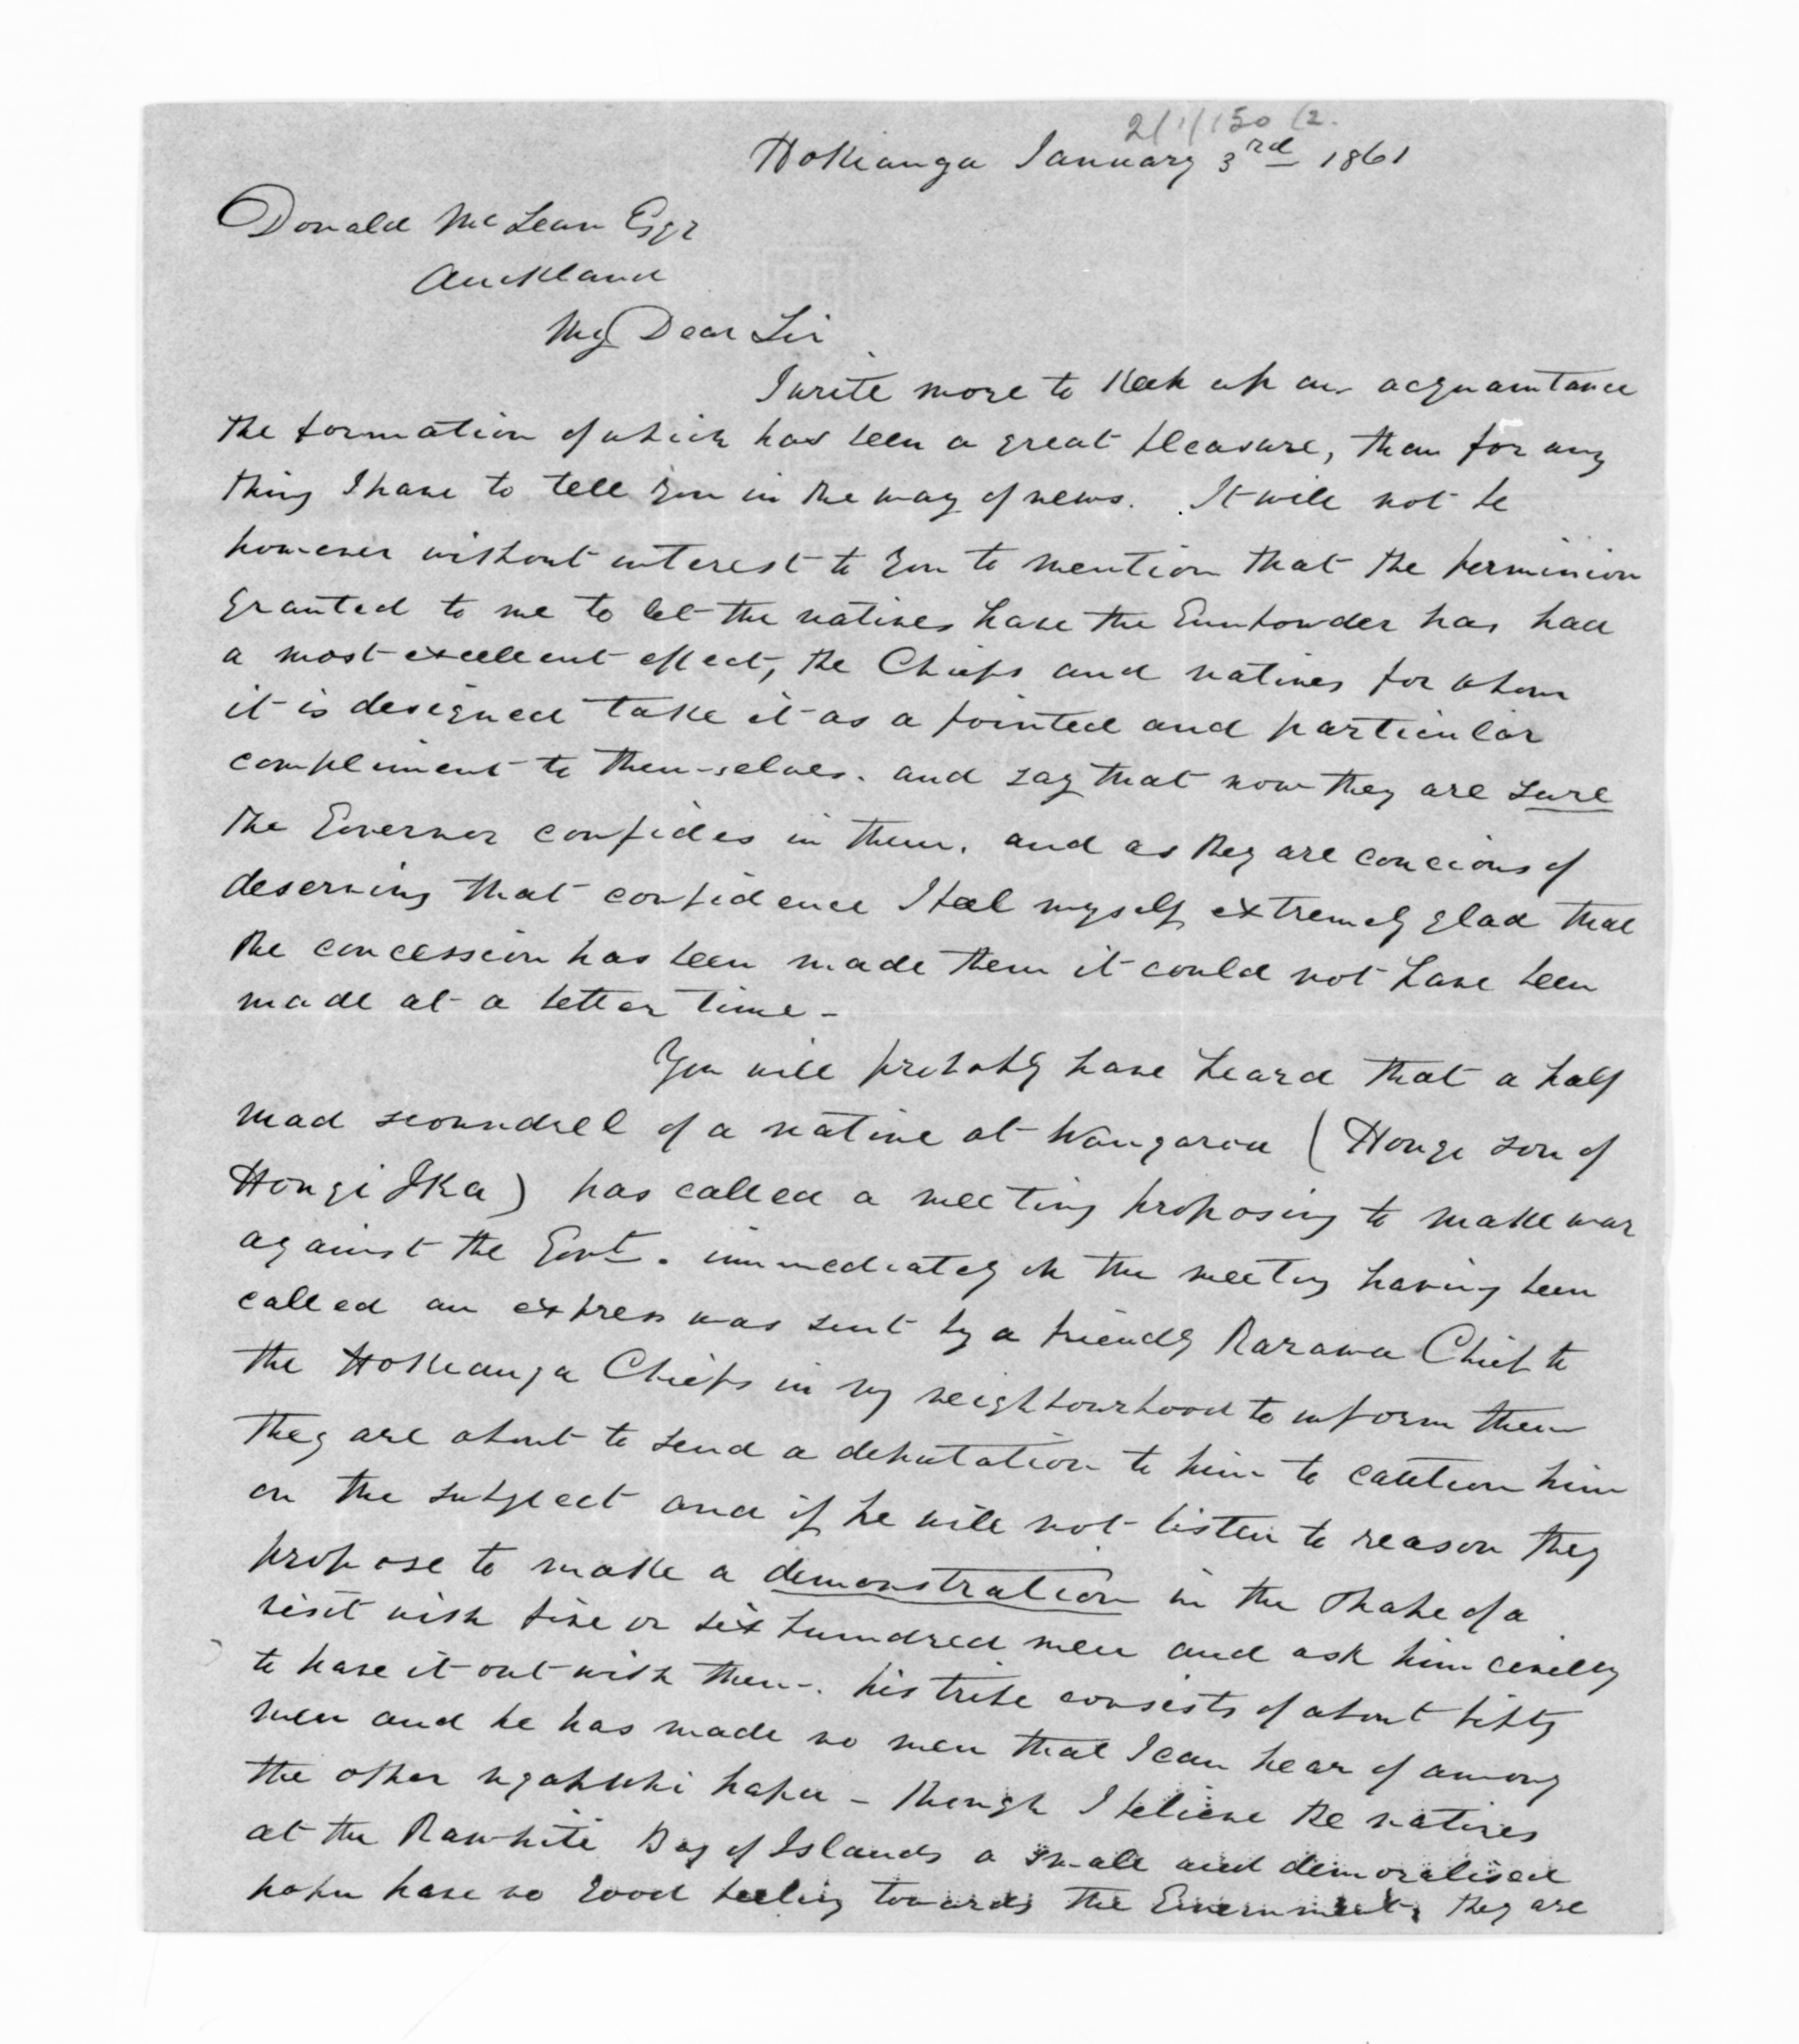 2/1/150 (2.
Hokianga January 3rd 1861
Donald McLean Esqr
Auckland
My Dear Sir
I write more to Keek up our acquaintance
the formation of which has been a great pleasure, than for any
thing I have to tell you in the way of news. It will not be
however without interest to you to mention that the permission
granted to me to let the natives have the Gunpowder has had
a most excellent effect, the Chiefs and natives for whom
it is designed take it as a pointed and particular
compliment to them-selves. and say that now they are sure
the Governor confides in them. and as they are concious of
deserving that confidence I feel myself extremely glad that
the concession has been made them it could not have been
made at a better time -
You will probably have heard that a half
mad scoundrel of a native at Wangaroa (Hongi son of
Hongi Ika) has called a meeting proposing to make war
against the Govt. immediately on the meeting having been
called an express was sent by a friendly Rarawa Chief to
the Hokianga Chiefs in my neighbourhood to inform them
they are about to send a deputation to him to caution him
on the subject and if he will not listen to reason they
propose to make a demonstration in the shape of a
visit with five or six hundred men and ask him civilly
to have it out with them. his tribe consists of about fifty
men and he has made no men that I can hear of among
the other ngapuhi hapu - though I believe the natives
at the Rawhiti Bay of Islands a small and demoralised
hapu have no good feeling towards the Government, they are